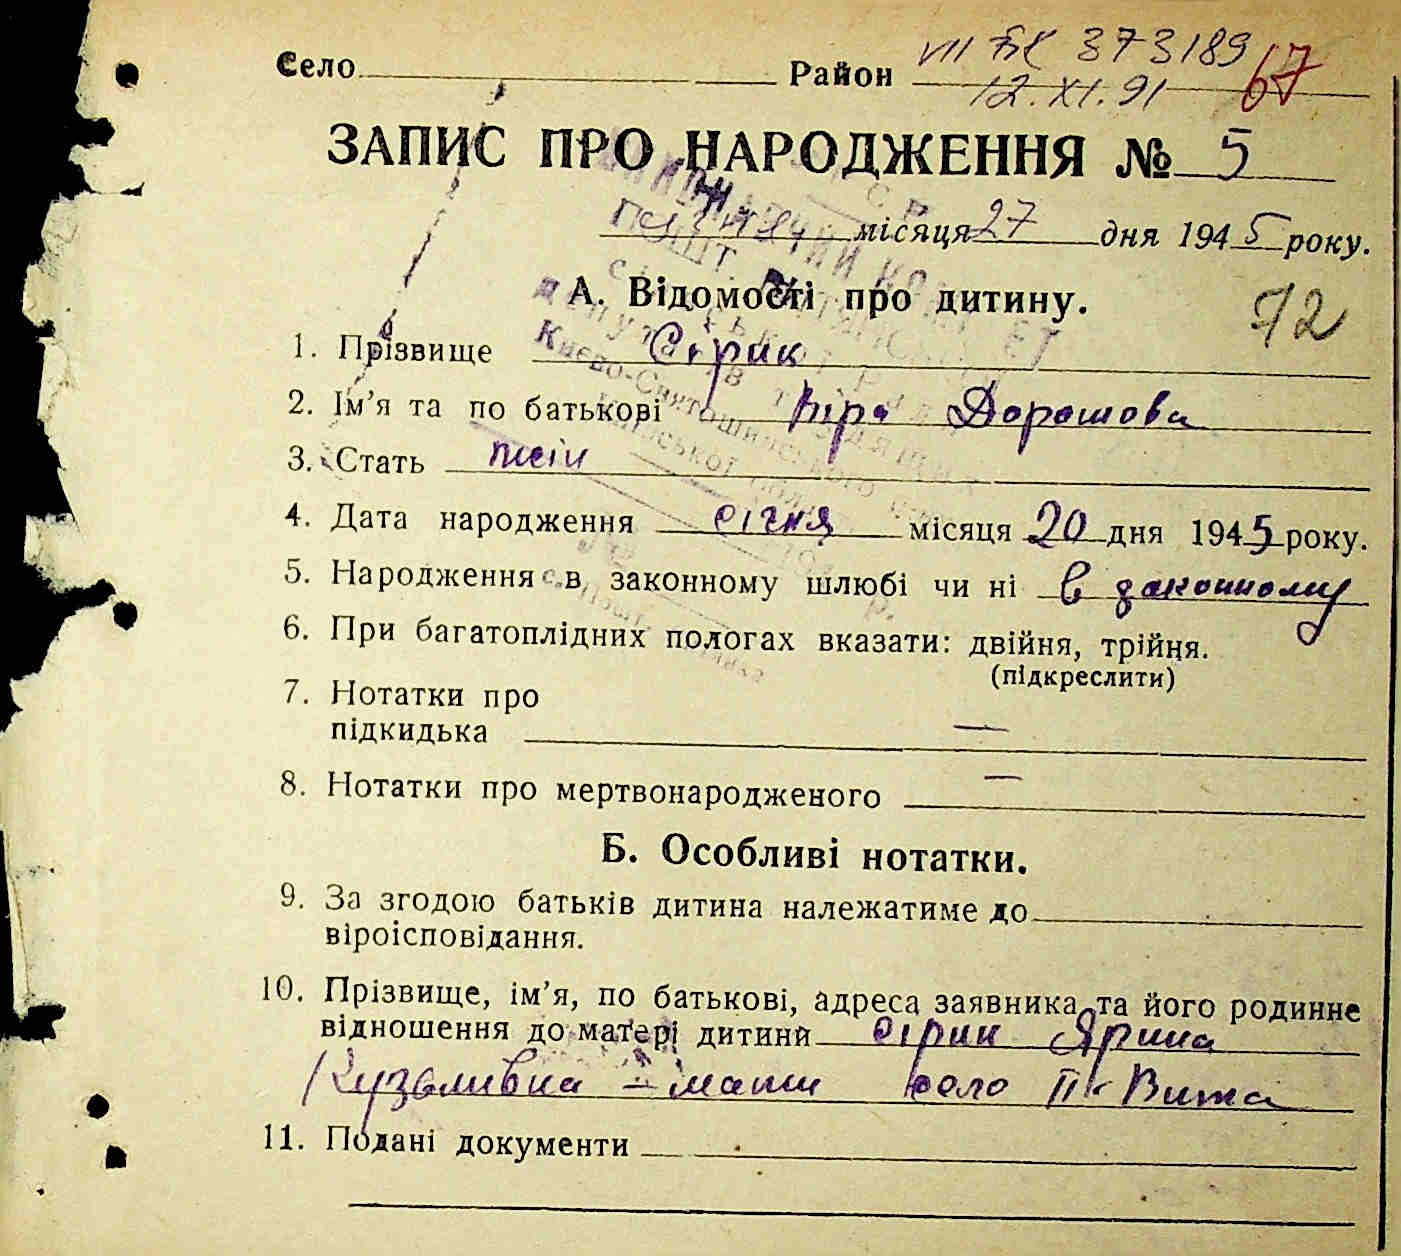 VII БК 373189 67
Село Район
12.XI.91
ЗАПИС ПРО НАРОДЖЕННЯ № 5
січня місяця 27 дня 1945 року.
А. Відомості про дитину.
72
1. Прізвище Сірик
2. Ім'я та по батькові Віра Дорошова
3. Стать жін
4. Дата народження січня місяця 20 дня 1945 року.
5. Народження в законному шлюбі чи ні в законному
6. При багатоплідних пологах вказати: двійня, трійня.
(підкреслити)
7. Нотатки про
підкидька —
8. Нотатки про мертвонародженого —
Б. Особливі нотатки.
9. За згодою батьків дитина належатиме до
віроісповідання.
10. Прізвище, ім'я, по батькові, адреса заявника та його родинне
відношення до матері дитини Сірик Ярина
Кузьмивна – мати село Вита
11. Подані документи